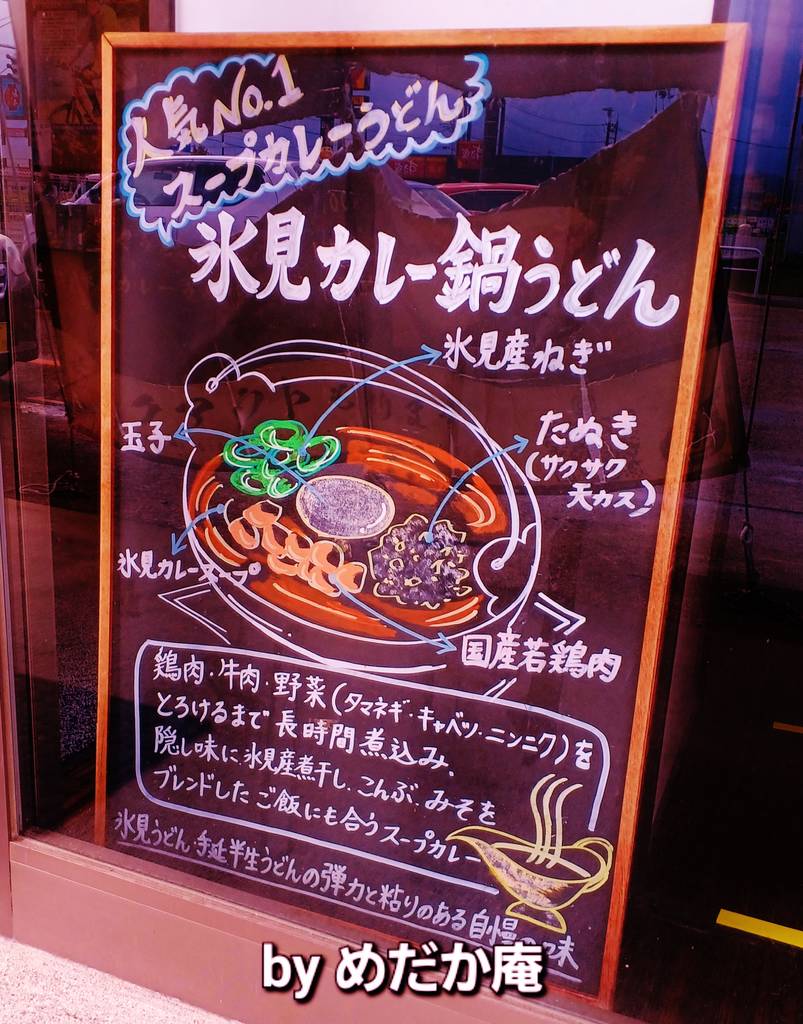 人気No.1
スープカレーうどん
氷見カレー鍋うどん
氷見産ねぎ
玉子
たぬき
(サクサク
天カス)
氷見カレースープ
国産若鶏肉
鶏肉・牛肉・野菜(タマネギ・キャベツ・ニンニク)を
とろけるまで長時間煮込み、
隠し味に氷見産煮干し、こんぶ、みそを
ブレンドしたご飯にも合うスープカレー
氷見うどん・手延半生うどんの弾力と粘りのある自慢の味
by めだか庵